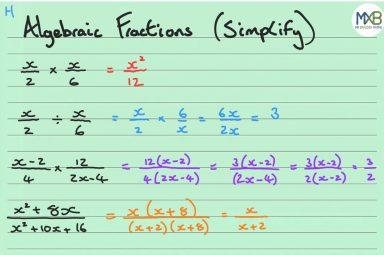 H Algebraic Fractions (Simplify) MXB
x/2 × x/6 = x²/12
x/2 ÷ x/6 = x/2 × 6/x = 6x/2x = 3
x-2/4 × 12/2x-4 = 12(x-2)/4(2x-4) = 3(x-2)/(2x-4) = 3(x-2)/2(x-2) = 3/2
x² + 8x/x² + 10x + 16 = x(x+8)/(x+2)(x+8) = x/x+2